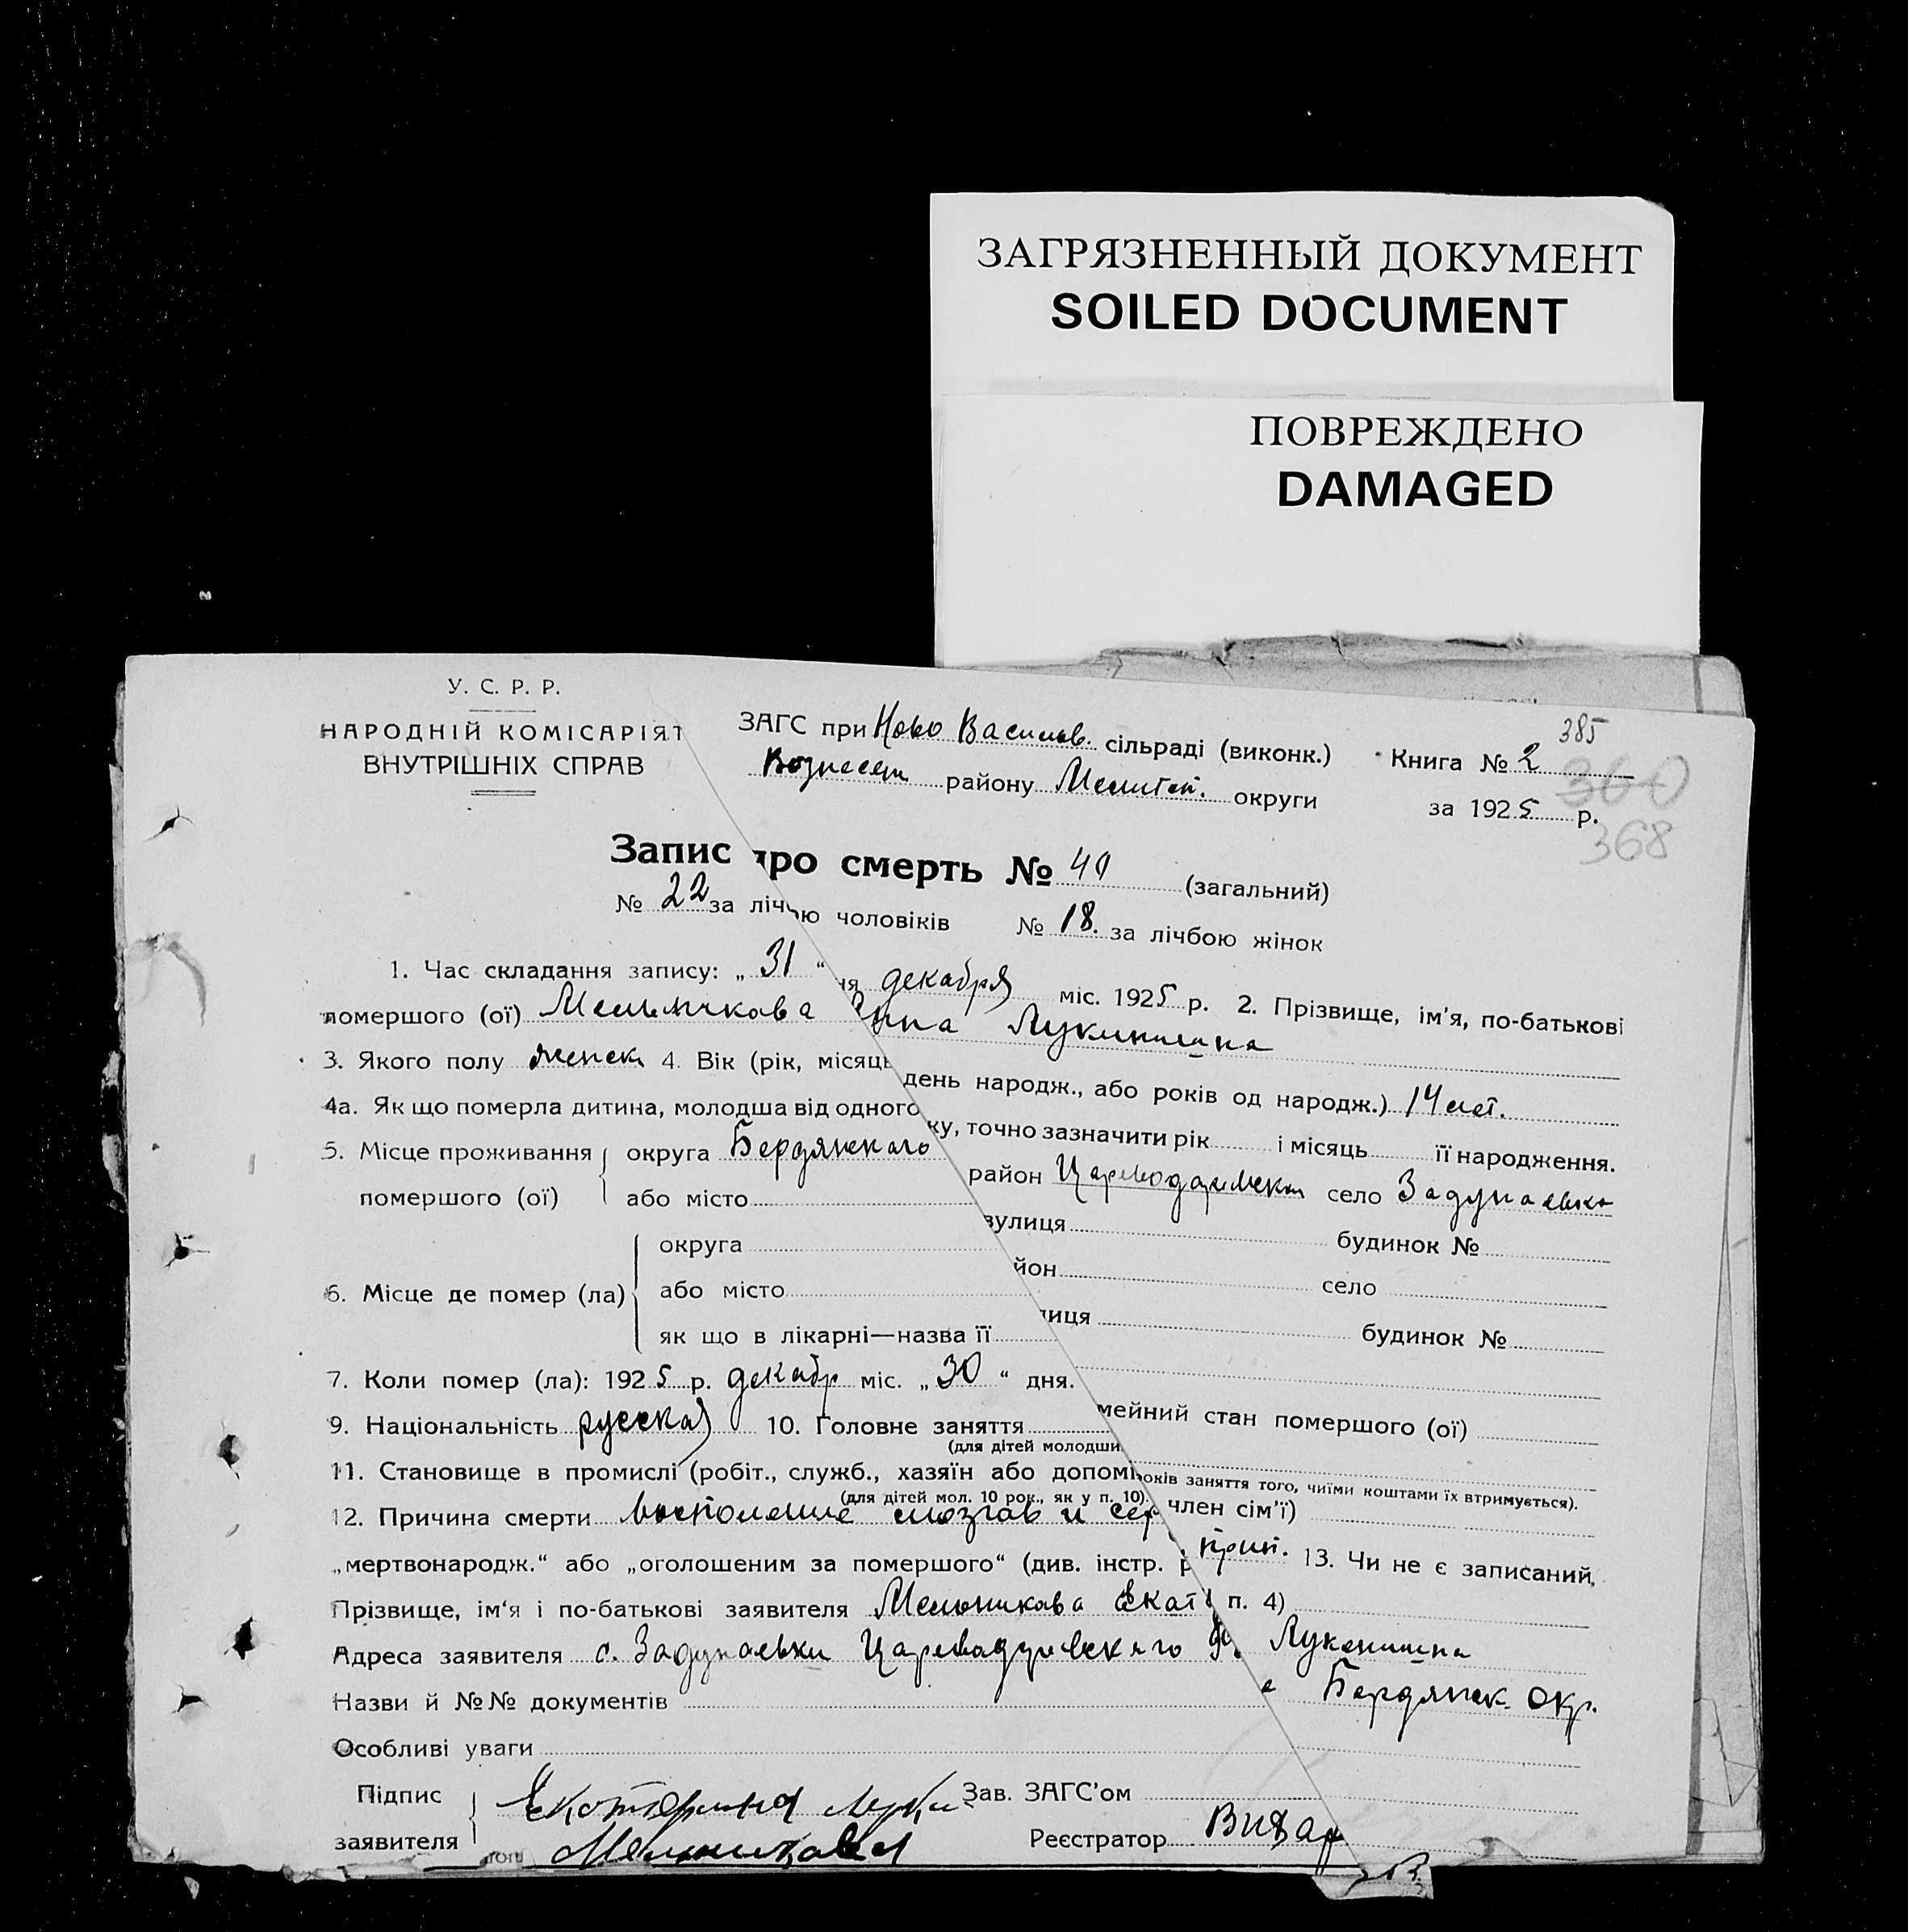 ЗАГРЯЗНЕННЫЙ ДОКУМЕНТ
SOILED DOCUMENT
ПОВРЕЖДЕНО
DAMAGED
У. С. Р. Р.
НАРОДНІЙ КОМІСАРІЯТ
ВНУТРІШНІХ СПРАВ
ЗАГС при Ново Васильев. сільраді (виконк.)
Вознесен району Мелитоп. округи
385
Книга № 2
360
за 1925 р.
368
Запис про смерть № 40 (загальний)
№ 22 за лічбою чоловіків № 18. за лічбою жінок
1. Час складання запису: „ 31 “ ня декабря міс. 1925 р. 2. Прізвище, ім'я, по-батькові
помершого (ої) Мельникова Анна Лукинишна
3. Якого полу женск 4. Вік (рік, місяць день народж., або років од народж.) 14 лет.
4а. Як що померла дитина, молодша від одного ку, точно зазначити рік і місяць її народження.
5. Місце проживання помершого (ої) округа Бердянского район село Задунаевка
або місто вулиця будинок №
6. Місце де помер (ла) округа йон село
або місто лиця будинок №
як що в лікарні—назва її
7. Коли помер (ла): 1925 р. декабр міс. „ 30 “ дня. мейний стан помершого (ої)
9. Національність русская 10. Головне заняття
(для дітей молодши років заняття того, чиїми коштами їх втримується).
11. Становище в промислі (робіт., служб., хазяїн або допомі член сім'ї)
(для дітей мол. 10 рок., як у п. 10).
12. Причина смерти восполение мозгав и 13. Чи не є записаний,
„мертвонародж.“ або „оголошеним за помершого“ (див. інстр. р п. 4)
Прізвище, ім'я і по-батькові заявителя Мельникова Екат Луконишна
Адреса заявителя с. Задунаевки Бердянск. окр.
Назви й №№ документів
Особливі уваги
Підпис заявителя Екотерина Луки
Мельникова
Зав. ЗАГС'ом
Реєстратор